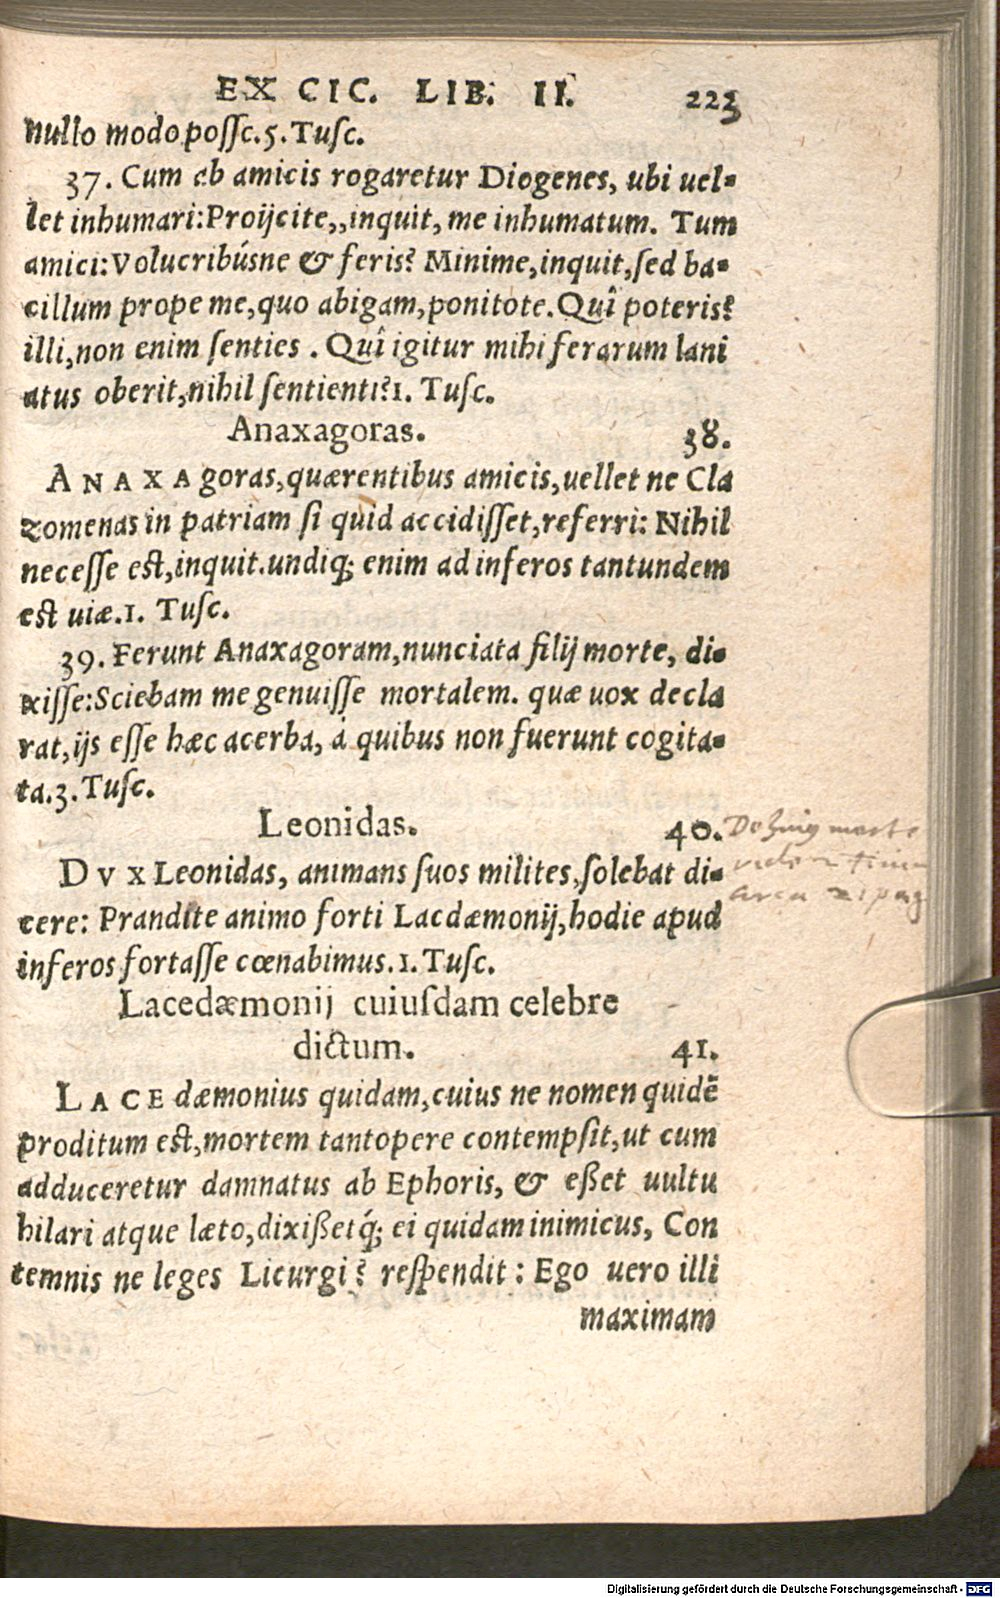 EX CIC. LIB. II. 223
nullo modo posse. 5. Tusc.
37. Cum ab amicis rogaretur Diogenes, ubi uel-
let inhumari: Proijcite,, inquit, me inhumatum. Tum
amici: Volucribúsne & feris? Minime, inquit, sed ba-
cillum prope me, quo abigam, ponitote. Quî poteris?
illi, non enim senties. Quî igitur mihi ferarum lani
atus oberit, nihil sentienti? 1. Tusc.
Anaxagoras. 38.
ANAXAgoras, quærentibus amicis, uellet ne Cla
zomenas in patriam si quid accidisset, referri: Nihil
necesse est, inquit. undiq; enim ad inferos tantundem
est uiæ. 1. Tusc.
39. Ferunt Anaxagoram, nunciata filij morte, di-
xisse: Sciebam me genuisse mortalem. quæ uox decla
rat, ijs esse hæc acerba, á quibus non fuerunt cogita-
ta. 3. Tusc.
Leonidas. 40.
DVX Leonidas, animans suos milites, solebat di-
cere: Prandite animo forti Lacdæmonij, hodie apud
inferos fortasse cœnabimus. 1. Tusc.
Lacedæmonij cuiusdam celebre
dictum. 41.
LACEdæmonius quidam, cuius ne nomen quidẽ
proditum est, mortem tantopere contempsit, ut cum
adduceretur damnatus ab Ephoris, & eßet uultu
hilari atque læto, dixißetq́; ei quidam inimicus, Con
temnis ne leges Licurgi? respendit: Ego uero illi
maximam
morte
Digitalisierung gefördert durch die Deutsche Forschungsgemeinschaft - DFG